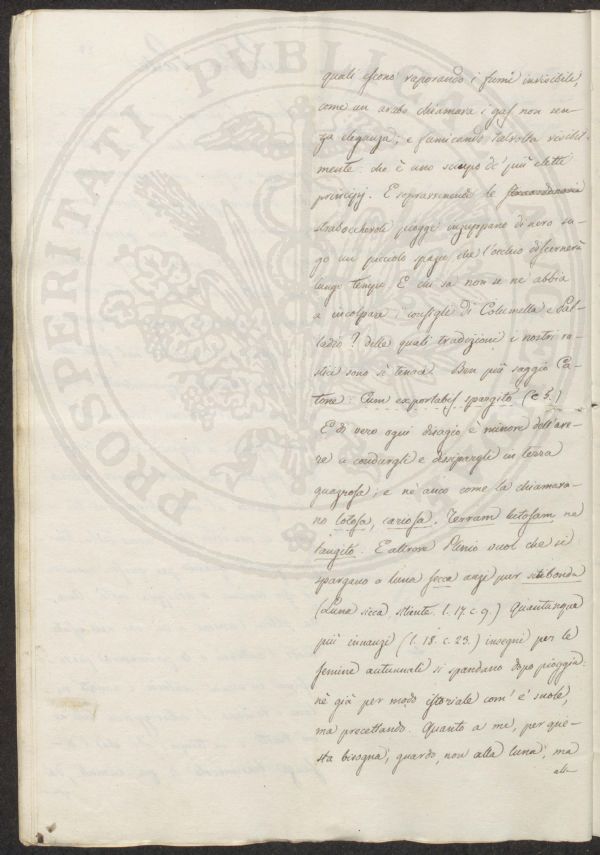 quali escono vaporando i fumi invisibile,
come un arabo chiamava i gas non sen-
za eleganza; e fumicando talvolta visibil-
mente: che è uno sciupo de' più eletti
principj. E sopravvenendo le
strabocchevoli piogge inzuppano di nero su-
go un piccolo spazio che l'occhio discernerà
lungo tempo. E chi sa non se ne abbia
a incolpare i consigli di Columella e Pal-
ladio? delle quali tradizioni i nostri ru-
stici sono sì tenaci. Ben più saggio Ca-
tone: Cum exportabis spargito (c 5.)
E di vero ogni disagio è minore dell'ave-
re a condurgli e dissipargli in terra
guazzosa; e nè anco come la chiamava-
no lotosa, cariosa. Terram lutosam ne
tangito. E altrove Plinio vuol che si
spargano a luna secca anzi pur sitibonda
(Luna sicca, sitiente. l. 17. c. 9.) Quantunque
più innanzi (l. 18. c. 23.) insegni per le
semine autunnali si spandano dopo pioggia:
nè già per modo istoriale com' è suole,
ma precettando. Quanto a me, per que-
sta bisogna, guardo, non alla luna, ma
alla
PROSPERITATI PVBLICAE